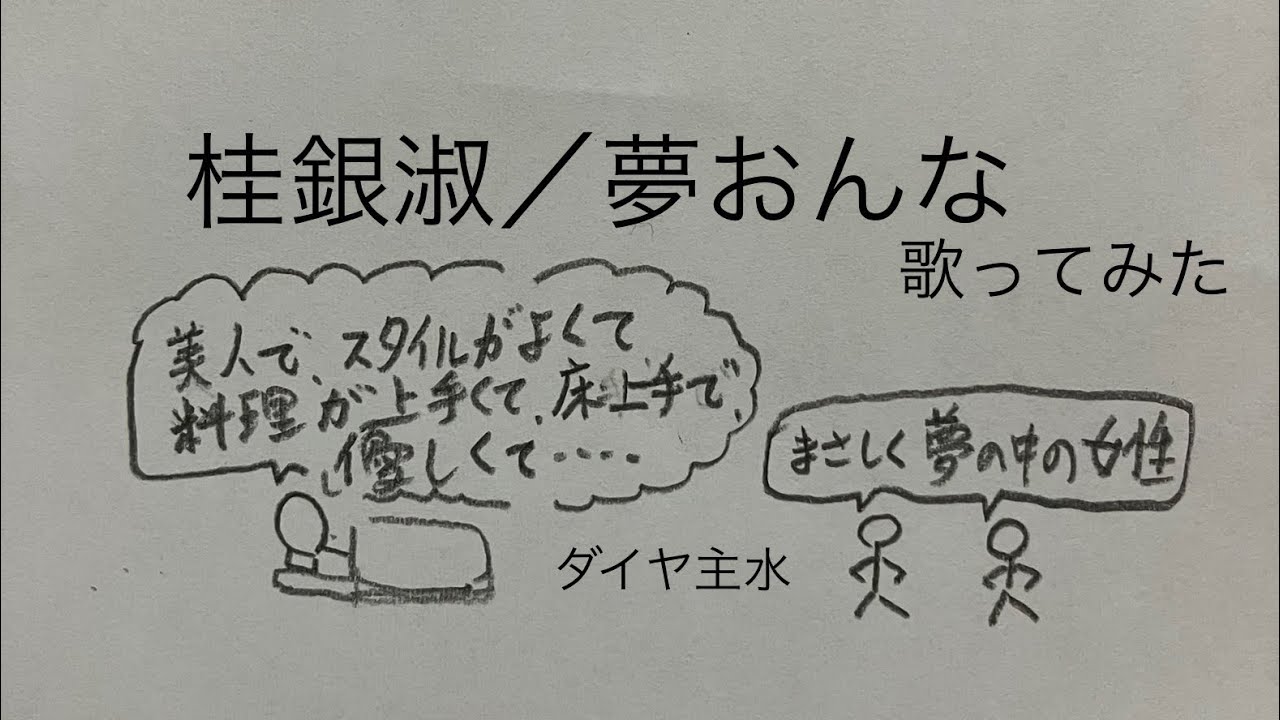 桂銀淑／夢おんな
歌ってみた
美人で、スタイルがよくて
料理が上手くて、床上手で、
優しくて・・・・
まさしく夢の中の女性
ダイヤ主水